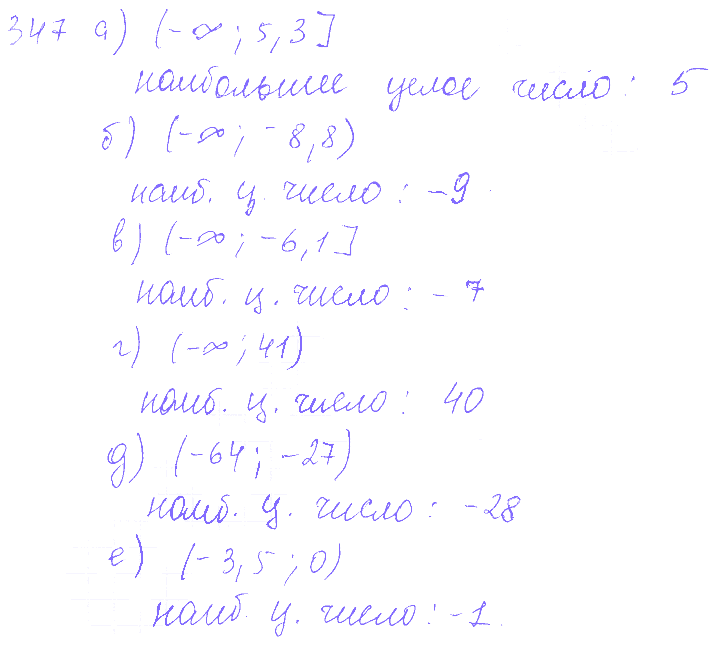 347 а) (-∞; 5,3]
наибольшее целое число: 5
б) (-∞; -8,8)
наиб. ц. число: -9
в) (-∞; -6,1]
наиб. ц. число: -7
г) (-∞; 41)
наиб. ц. число: 40
д) (-64; -27)
наиб. ц. число: -28
е) (-3,5; 0)
наиб. ц. число: -1.